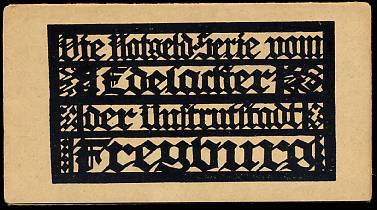 Die Notgeld-Serie vom
Edelacker
der Unstrutstadt
Freyburg